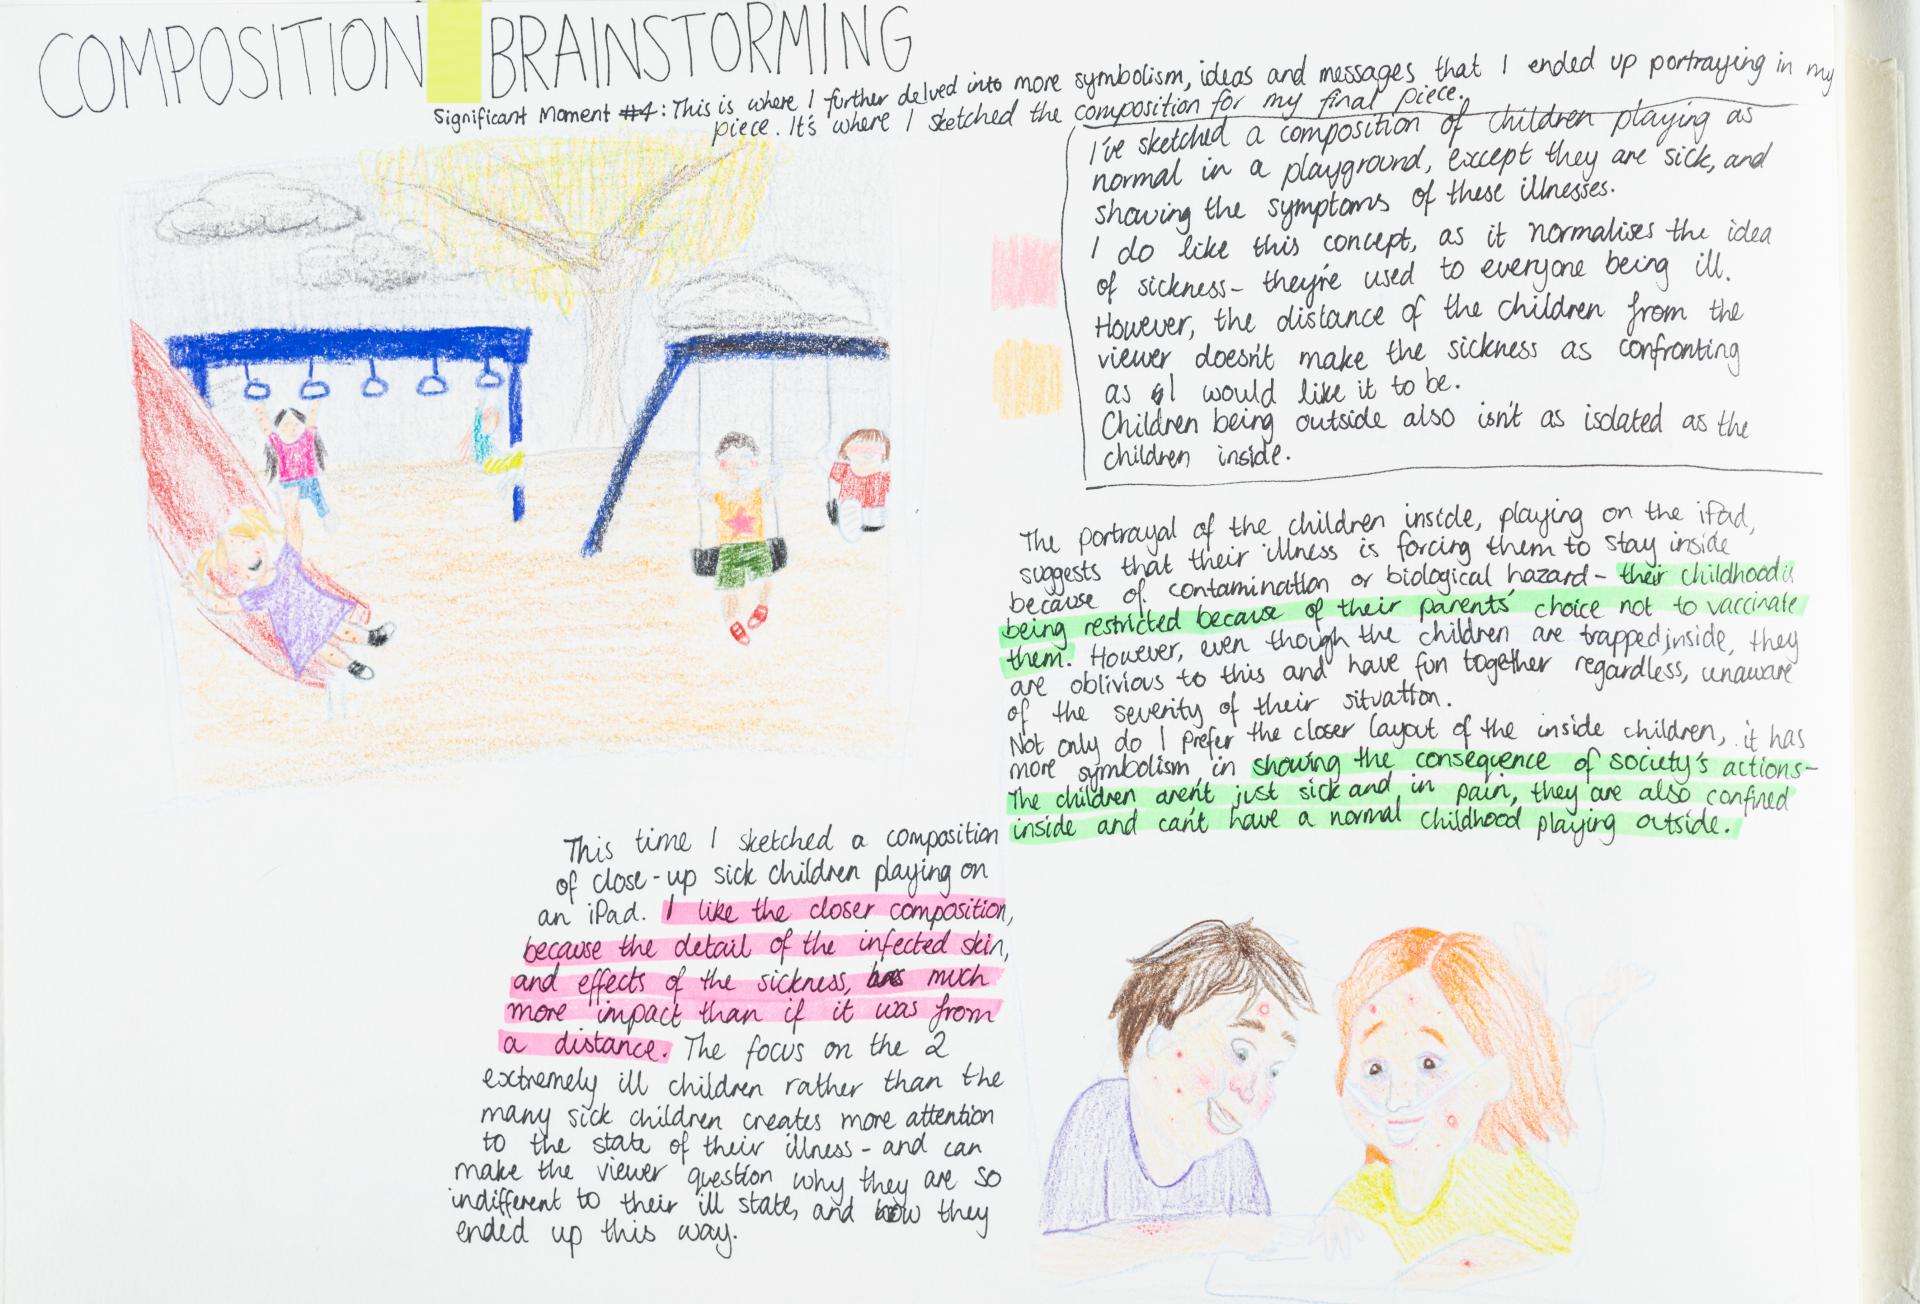 COMPOSITION BRAINSTORMING
Significant Moment #4: This is where I further delved into more symbolism, ideas and messages that I ended up portraying in my
piece. It's where I sketched the composition for my final piece.
I've sketched a composition of children playing as
normal in a playground, except they are sick, and
showing the symptoms of these illnesses.
I do like this concept, as it normalises the idea
of sickness - they're used to everyone being ill.
However, the distance of the children from the
viewer doesn't make the sickness as confronting
as I would like it to be.
Children being outside also isn't as isolated as the
children inside.
The portrayal of the children inside, playing on the iPad,
suggests that their illness is forcing them to stay inside
because of contamination or biological hazard - their childhood is
being restricted because of their parents' choice not to vaccinate
them. However, even though the children are trapped inside, they
are oblivious to this and have fun together regardless, unaware
of the severity of their situation.
Not only do I prefer the closer layout of the inside children, it has
more symbolism in showing the consequence of society's actions -
The children aren't just sick and in pain, they are also confined
inside and can't have a normal childhood playing outside.
This time I sketched a composition
of close-up sick children playing on
an iPad. I like the closer composition,
because the detail of the infected skin,
and effects of the sickness, has much
more impact than if it was from
a distance. The focus on the 2
extremely ill children rather than the
many sick children creates more attention
to the state of their illness - and can
make the viewer question why they are so
indifferent to their ill state, and how they
ended up this way.